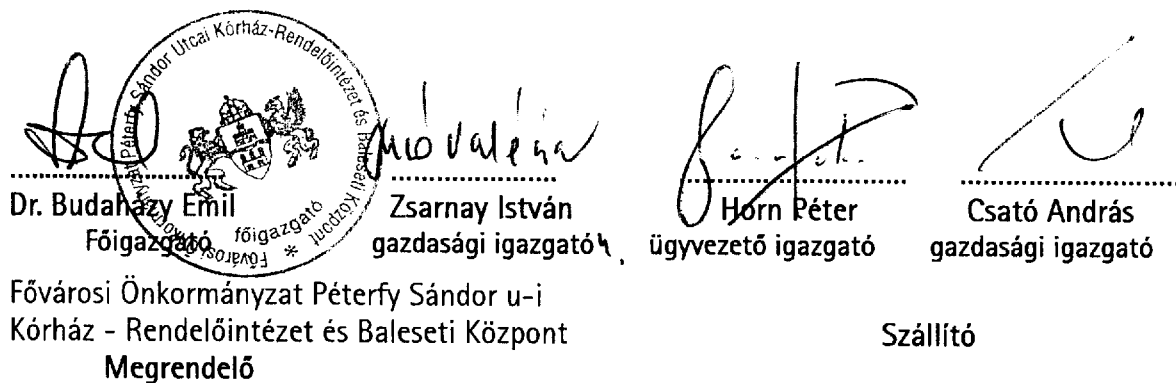 Fővárosi Önkormányzat Péterfy Sándor Utcai Kórház-Rendelőintézet és Baleseti Központ *
főigazgató
Dr. Budaházy Emil
Főigazgató
Zsarnay István
gazdasági igazgató h.
Horn Péter
ügyvezető igazgató
Csató András
gazdasági igazgató
Fővárosi Önkormányzat Péterfy Sándor u-i
Kórház - Rendelőintézet és Baleseti Központ
Megrendelő
Szállító